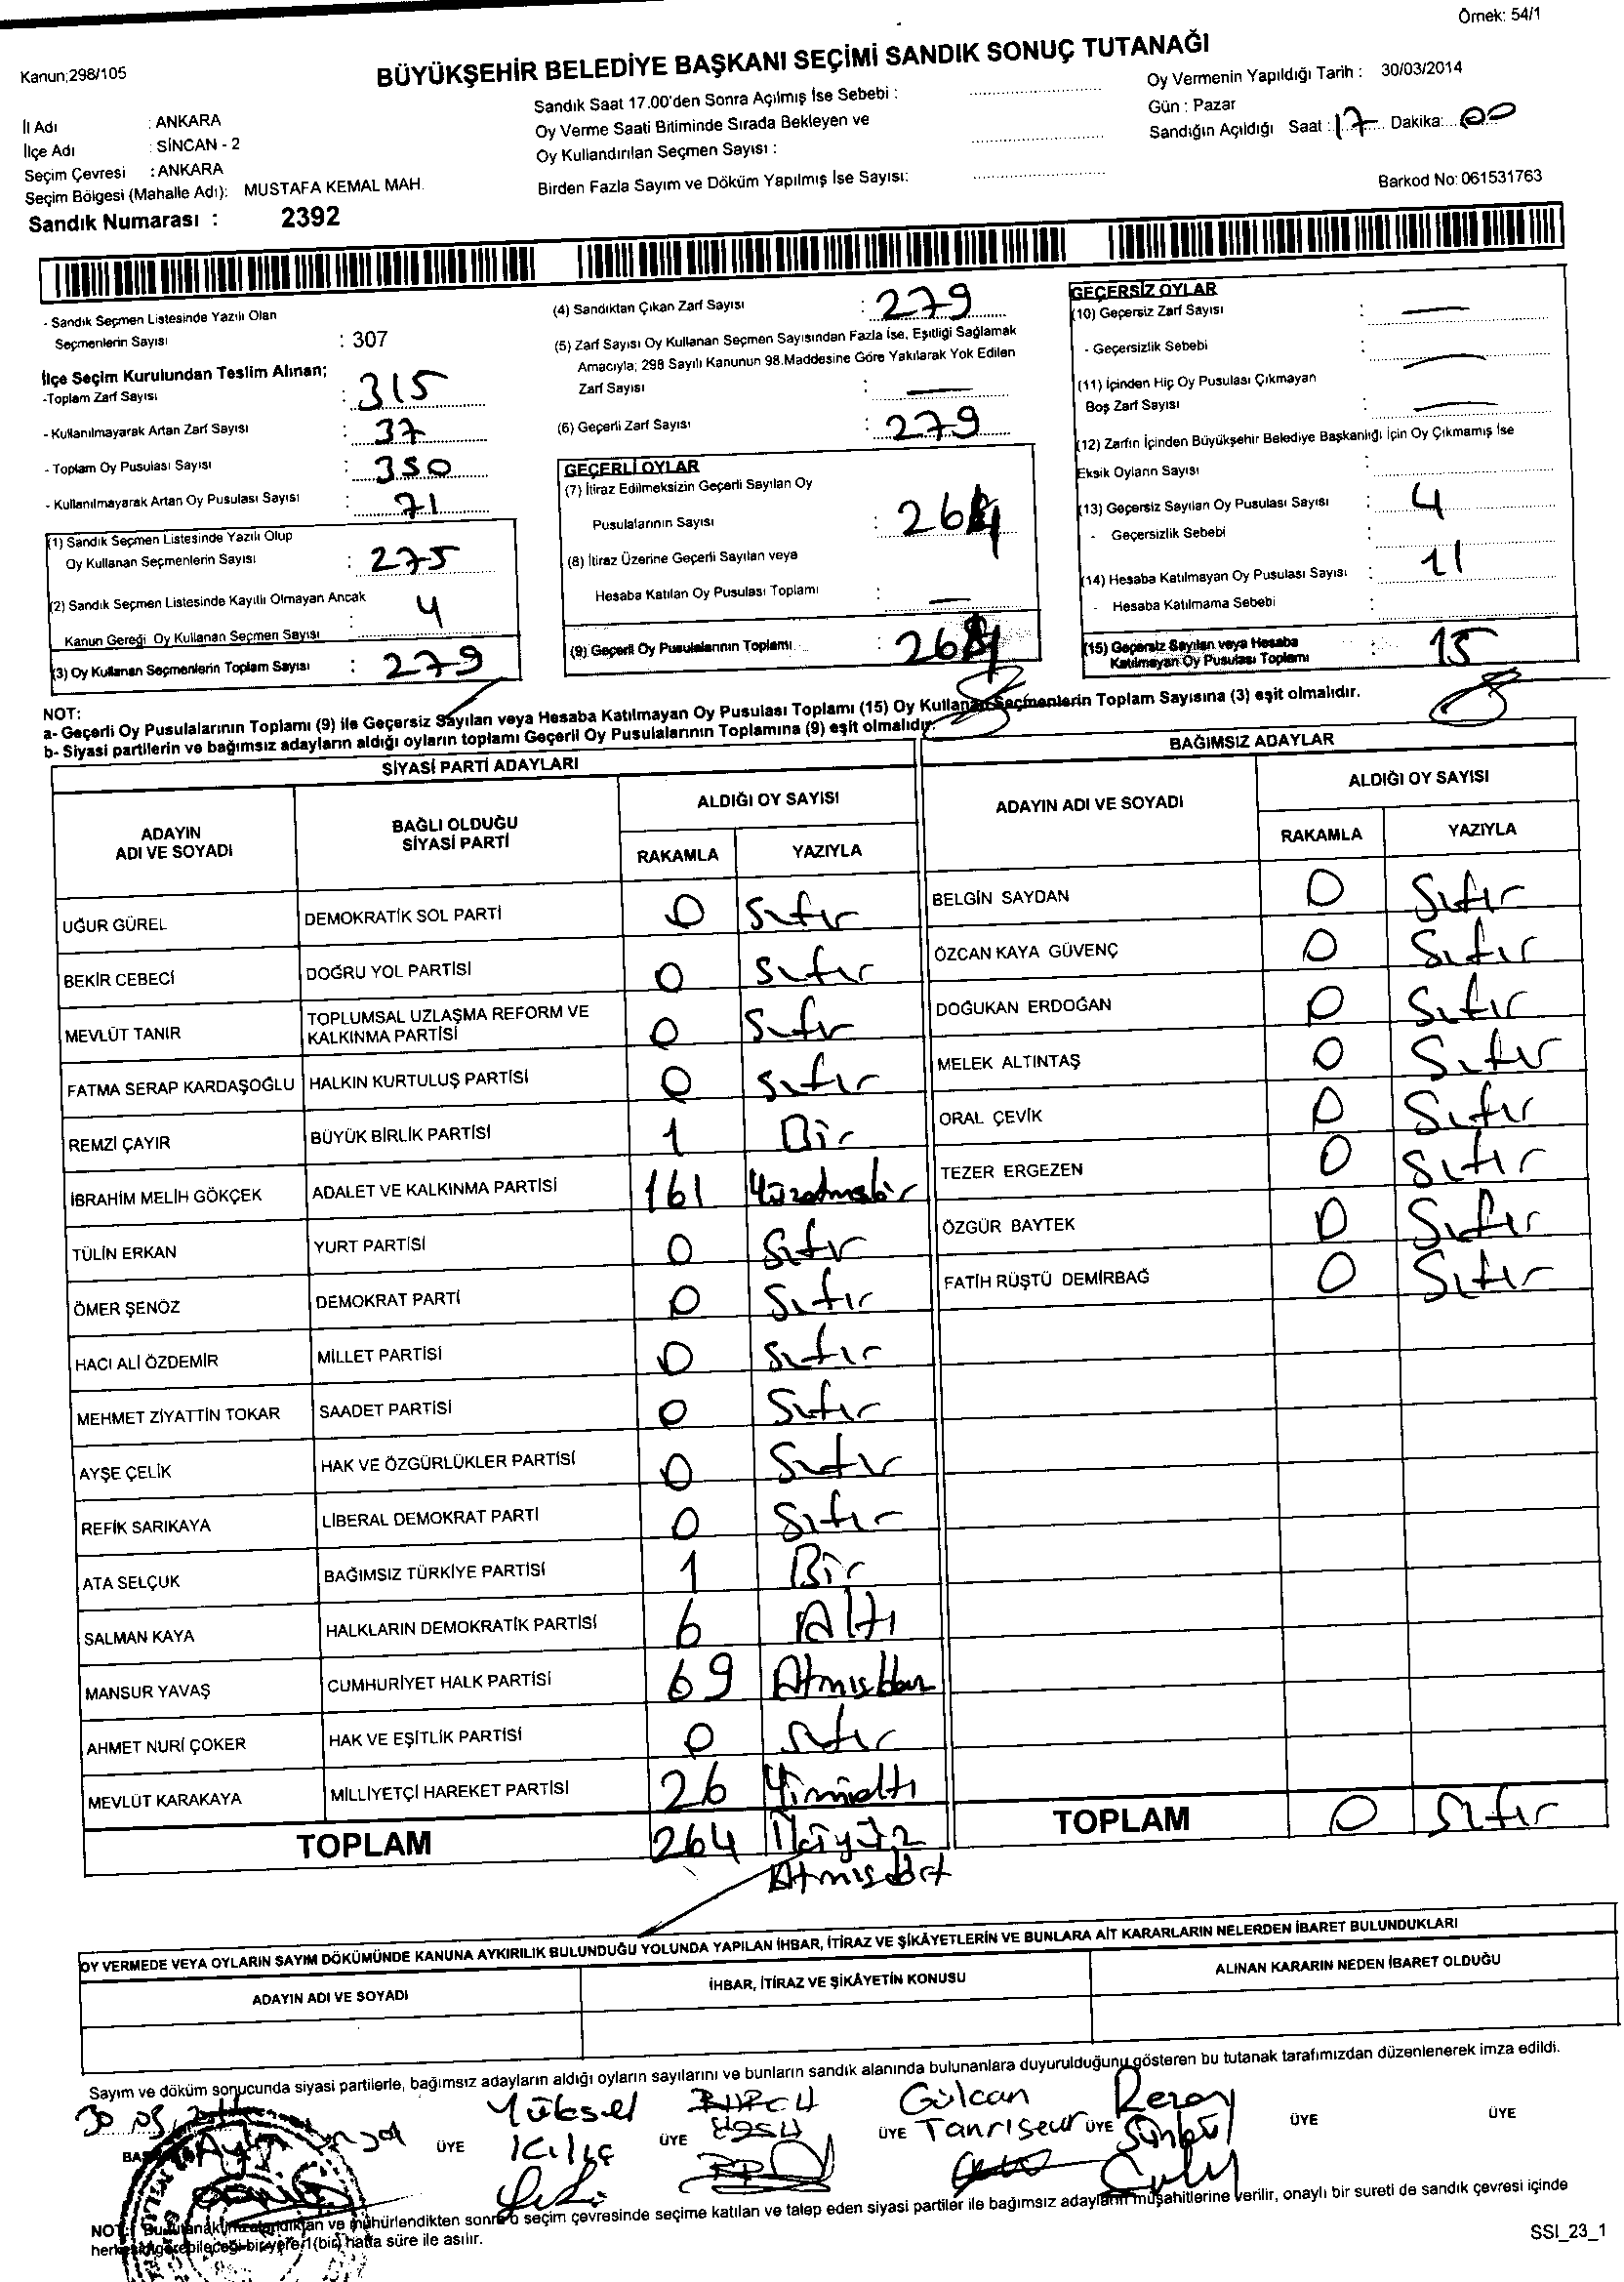 Örnek: 54/1
Kanun;298/105
BÜYÜKŞEHİR BELEDİYE BAŞKANI SEÇİMİ SANDIK SONUÇ TUTANAĞI
İl Adı : ANKARA
İlçe Adı : SİNCAN - 2
Seçim Çevresi : ANKARA
Seçim Bölgesi (Mahalle Adı): MUSTAFA KEMAL MAH.
Sandık Numarası : 2392
Sandık Saat 17.00'den Sonra Açılmış İse Sebebi :
Oy Verme Saati Bitiminde Sırada Bekleyen ve
Oy Kullandırılan Seçmen Sayısı :
Birden Fazla Sayım ve Döküm Yapılmış İse Sayısı:
Oy Vermenin Yapıldığı Tarih : 30/03/2014
Gün : Pazar
Sandığın Açıldığı Saat : 17 Dakika: 00
Barkod No: 061531763
- Sandık Seçmen Listesinde Yazılı Olan
Seçmenlerin Sayısı : 307
İlçe Seçim Kurulundan Teslim Alınan;
-Toplam Zarf Sayısı : 315
- Kullanılmayarak Artan Zarf Sayısı : 37
- Toplam Oy Pusulası Sayısı : 350
- Kullanılmayarak Artan Oy Pusulası Sayısı : 71
(1) Sandık Seçmen Listesinde Yazılı Olup
Oy Kullanan Seçmenlerin Sayısı : 275
(2) Sandık Seçmen Listesinde Kayıtlı Olmayan Ancak
Kanun Gereği Oy Kullanan Seçmen Sayısı : 4
(3) Oy Kullanan Seçmenlerin Toplam Sayısı : 279
(4) Sandıktan Çıkan Zarf Sayısı : 279
(5) Zarf Sayısı Oy Kullanan Seçmen Sayısından Fazla İse, Eşitliği Sağlamak
Amacıyla; 298 Sayılı Kanunun 98.Maddesine Göre Yakılarak Yok Edilen
Zarf Sayısı : —
(6) Geçerli Zarf Sayısı : 279
GEÇERLİ OYLAR
(7) İtiraz Edilmeksizin Geçerli Sayılan Oy
Pusulalarının Sayısı : 264
(8) İtiraz Üzerine Geçerli Sayılan veya
Hesaba Katılan Oy Pusulası Toplamı : —
(9) Geçerli Oy Pusulalarının Toplamı : 264
GEÇERSİZ OYLAR
(10) Geçersiz Zarf Sayısı : —
- Geçersizlik Sebebi : —
(11) İçinden Hiç Oy Pusulası Çıkmayan
Boş Zarf Sayısı : —
(12) Zarfın İçinden Büyükşehir Belediye Başkanlığı İçin Oy Çıkmamış İse
Eksik Oyların Sayısı :
(13) Geçersiz Sayılan Oy Pusulası Sayısı : 4
- Geçersizlik Sebebi :
(14) Hesaba Katılmayan Oy Pusulası Sayısı : 11
- Hesaba Katılmama Sebebi :
(15) Geçersiz Sayılan veya Hesaba
Katılmayan Oy Pusulası Toplamı : 15
NOT:
a- Geçerli Oy Pusulalarının Toplamı (9) ile Geçersiz Sayılan veya Hesaba Katılmayan Oy Pusulası Toplamı (15) Oy Kullanan Seçmenlerin Toplam Sayısına (3) eşit olmalıdır.
b- Siyasi partilerin ve bağımsız adayların aldığı oyların toplamı Geçerli Oy Pusulalarının Toplamına (9) eşit olmalıdır.
SİYASİ PARTİ ADAYLARI
ADAYIN ADI VE SOYADI BAĞLI OLDUĞU SİYASİ PARTİ ALDIĞI OY SAYISI
RAKAMLA YAZIYLA
UĞUR GÜREL DEMOKRATİK SOL PARTİ 0 Sıfır
BEKİR CEBECİ DOĞRU YOL PARTİSİ 0 Sıfır
MEVLÜT TANIR TOPLUMSAL UZLAŞMA REFORM VE KALKINMA PARTİSİ 0 Sıfır
FATMA SERAP KARDAŞOĞLU HALKIN KURTULUŞ PARTİSİ 0 Sıfır
REMZİ ÇAYIR BÜYÜK BİRLİK PARTİSİ 1 Bir
İBRAHİM MELİH GÖKÇEK ADALET VE KALKINMA PARTİSİ 161 Yüzatmışbir
TÜLİN ERKAN YURT PARTİSİ 0 Sıfır
ÖMER ŞENÖZ DEMOKRAT PARTİ 0 Sıfır
HACI ALİ ÖZDEMİR MİLLET PARTİSİ 0 Sıfır
MEHMET ZİYATTİN TOKAR SAADET PARTİSİ 0 Sıfır
AYŞE ÇELİK HAK VE ÖZGÜRLÜKLER PARTİSİ 0 Sıfır
REFİK SARIKAYA LİBERAL DEMOKRAT PARTİ 0 Sıfır
ATA SELÇUK BAĞIMSIZ TÜRKİYE PARTİSİ 1 Bir
SALMAN KAYA HALKLARIN DEMOKRATİK PARTİSİ 6 Altı
MANSUR YAVAŞ CUMHURİYET HALK PARTİSİ 69 Atmışdokuz
AHMET NURİ ÇOKER HAK VE EŞİTLİK PARTİSİ 0 Sıfır
MEVLÜT KARAKAYA MİLLİYETÇİ HAREKET PARTİSİ 26 Yirmialtı
TOPLAM 264 İkiyüz
Atmışdört
BAĞIMSIZ ADAYLAR
ADAYIN ADI VE SOYADI ALDIĞI OY SAYISI
RAKAMLA YAZIYLA
BELGİN SAYDAN 0 Sıfır
ÖZCAN KAYA GÜVENÇ 0 Sıfır
DOĞUKAN ERDOĞAN 0 Sıfır
MELEK ALTINTAŞ 0 Sıfır
ORAL ÇEVİK 0 Sıfır
TEZER ERGEZEN 0 Sıfır
ÖZGÜR BAYTEK 0 Sıfır
FATİH RÜŞTÜ DEMİRBAĞ 0 Sıfır
TOPLAM 0 Sıfır
OY VERMEDE VEYA OYLARIN SAYIM DÖKÜMÜNDE KANUNA AYKIRILIK BULUNDUĞU YOLUNDA YAPILAN İHBAR, İTİRAZ VE ŞİKÂYETLERİN VE BUNLARA AİT KARARLARIN NELERDEN İBARET BULUNDUKLARI
ADAYIN ADI VE SOYADI İHBAR, İTİRAZ VE ŞİKÂYETİN KONUSU ALINAN KARARIN NEDEN İBARET OLDUĞU
Sayım ve döküm sonucunda siyasi partilerle, bağımsız adayların aldığı oyların sayılarını ve bunların sandık alanında bulunanlara duyurulduğunu gösteren bu tutanak tarafımızdan düzenlenerek imza edildi.
Yüksel Gülcan
ÜYE Kılıç ÜYE ÜYE Tanrısever ÜYE Sünbül ÜYE ÜYE
NOT: Bu tutanak imzalandıktan ve mühürlendikten sonra o seçim çevresinde seçime katılan ve talep eden siyasi partiler ile bağımsız adayların müşahitlerine verilir, onaylı bir sureti de sandık çevresi içinde
herkesin görebileceği bir yere 1(bir) hafta süre ile asılır.
SSI_23_1